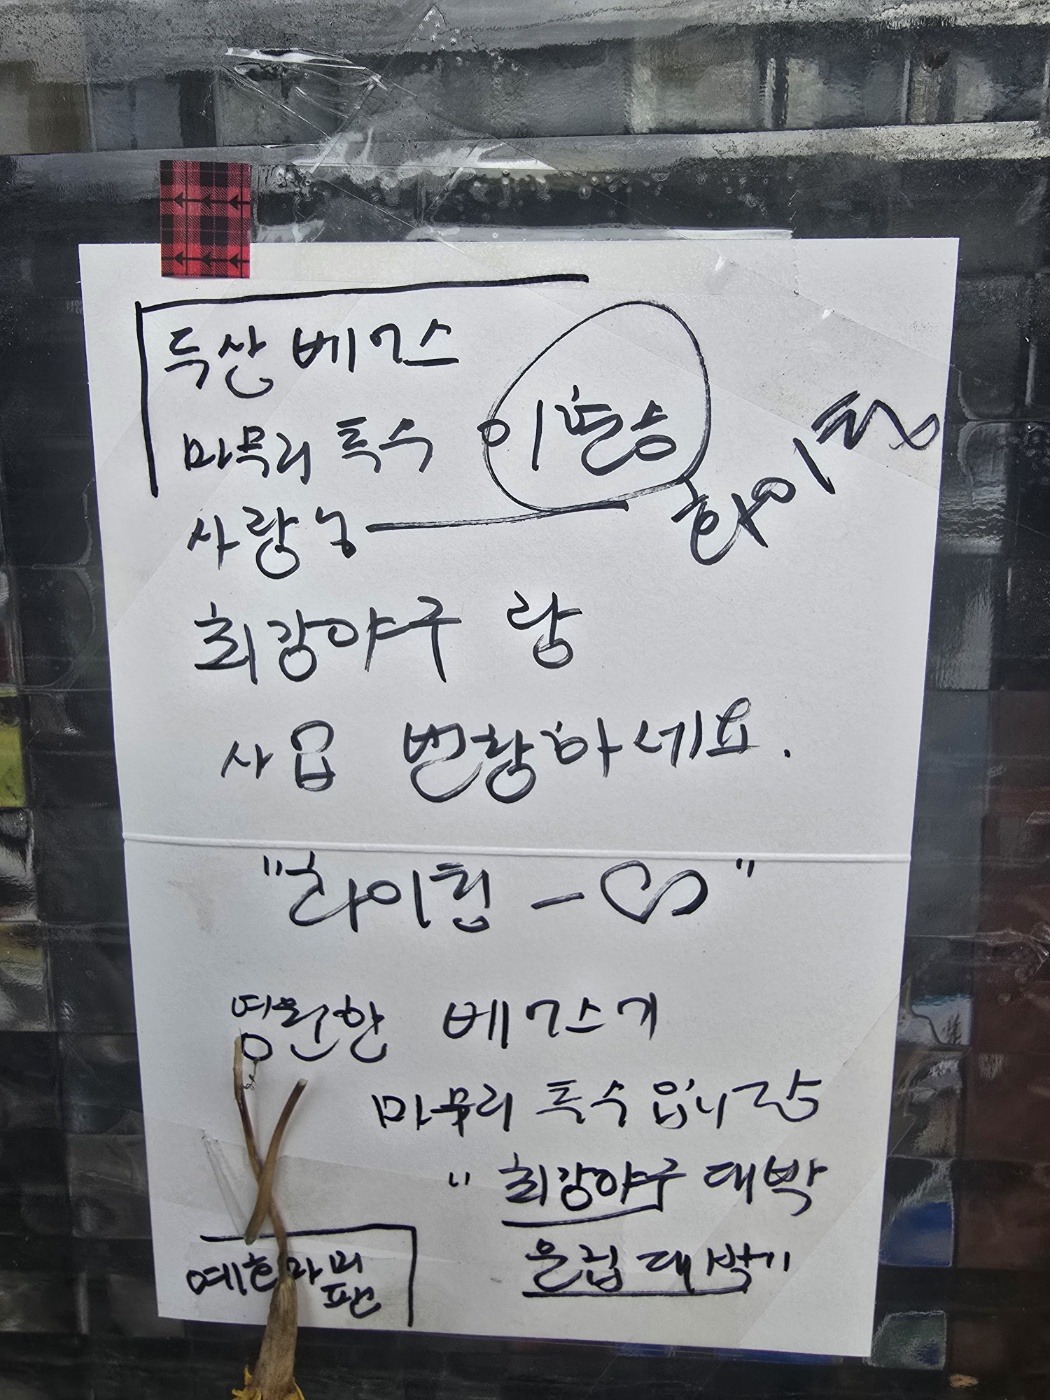 두산 베어스
마무리 투수 이현승
화이팅
사랑
최강야구 랑
사업 번창하세요.
"화이팅 - ♡"
영원한 베어스
마무리 투수입니다
" 최강야구 대박
대박
예흔
팬